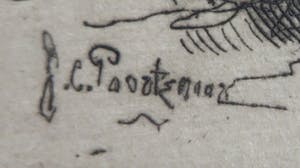 J.C. Poortenaar